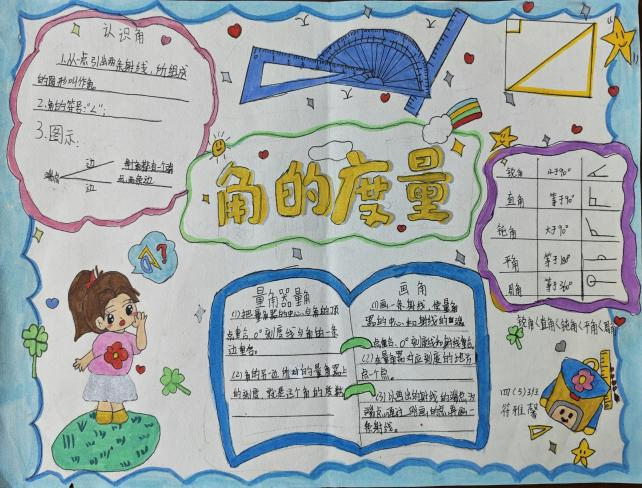 认识角
1.从一点引出两条射线，所组成
的图形叫作角。
2.角的符号:“∠”;
3.图示:
边
端点
边
每个角都有一个端
点，两条边
角的度量
锐角 小于90°
直角 等于90°
钝角 大于90°
平角 等于180°
周角 等于360°
锐角<直角<钝角<平角<周角
?
量角器量角
(1)把量角器的中心与角的顶
点重合，0°刻度线与角的一条
边重合。
(2)角的另一边所对的量角器上
的刻度，就是这个角的度数
画角
(1)画一条射线，使量角
器的中心和射线的端
点重合，0°刻度线和射线重合。
(2)在量角器对应刻度的地方
点一个点。
(3)以画出的射线的端点为
端点，通过刚画的点，再画一
条射线。
四(5)班
符雅馨